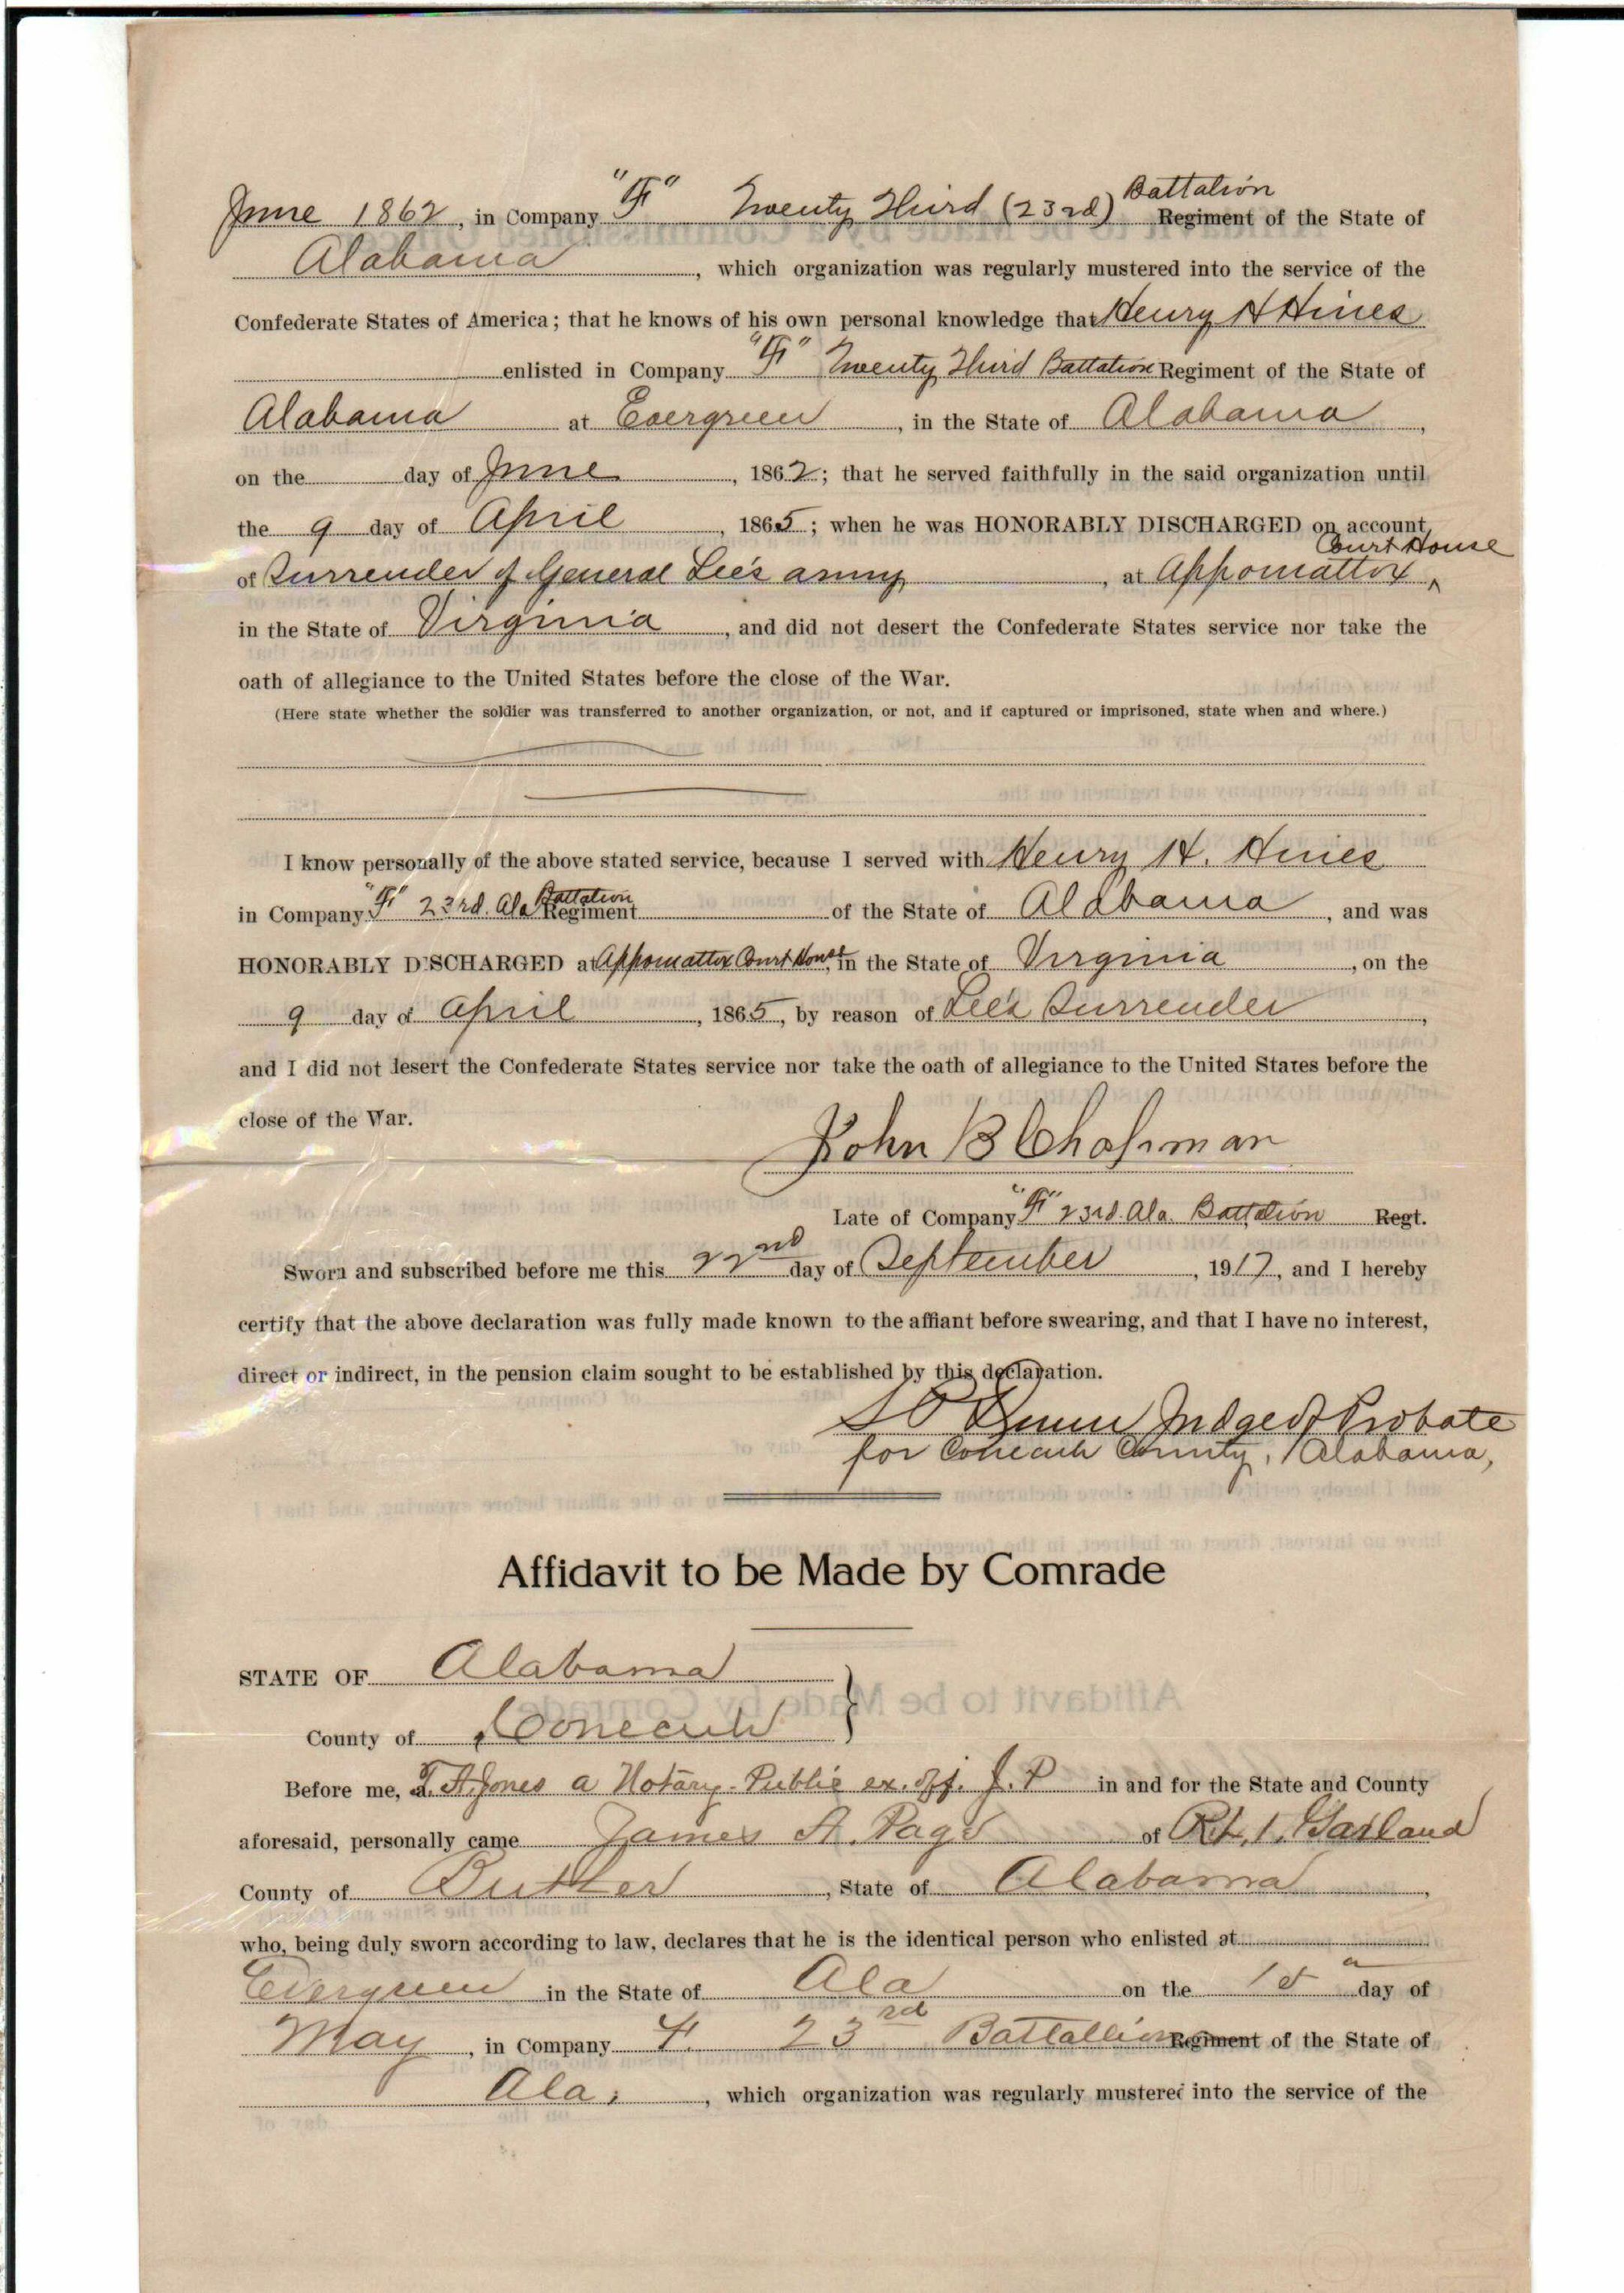 June 1862, in Company "F" Twenty Third (23rd) Battalion Regiment of the State of
Alabama, which organization was regularly mustered into the service of the
Confederate States of America; that he knows of his own personal knowledge that Henry H Hines
enlisted in Company "F" Twenty Third Battalion Regiment of the State of
Alabama at Evergreen, in the State of Alabama,
on the day of June, 1862; that he served faithfully in the said organization until
the 9 day of April, 1865; when he was HONORABLY DISCHARGED on account
of Surrender of General Lee's army, at Appomattox Court House
in the State of Virginia, and did not desert the Confederate States service nor take the
oath of allegiance to the United States before the close of the War.
(Here state whether the soldier was transferred to another organization, or not, and if captured or imprisoned, state when and where.)
I know personally of the above stated service, because I served with Henry H. Hines
in Company "F" 23rd. Ala Battalion Regiment of the State of Alabama, and was
HONORABLY DISCHARGED at Appomattox Court House, in the State of Virginia, on the
9 day of April, 1865, by reason of Lee's Surrender,
and I did not desert the Confederate States service nor take the oath of allegiance to the United States before the
close of the War.
John B Chapman
Late of Company "F" 23rd. Ala. Battalion Regt.
Sworn and subscribed before me this 22nd day of September, 1917, and I hereby
certify that the above declaration was fully made known to the affiant before swearing, and that I have no interest,
direct or indirect, in the pension claim sought to be established by this declaration.
S P Dunn Judge of Probate
for Conecuh County, Alabama,
Affidavit to be Made by Comrade
STATE OF Alabama
County of Conecuh
Before me, a T. A. Jones a Notary Public ex. off. J. P in and for the State and County
aforesaid, personally came James A. Page of Rt. 1. Garland
County of Butler, State of Alabama,
who, being duly sworn according to law, declares that he is the identical person who enlisted at
Evergreen in the State of Ala on the 1st day of
May, in Company F. 23rd Battallion Regiment of the State of
Ala, which organization was regularly mustered into the service of the